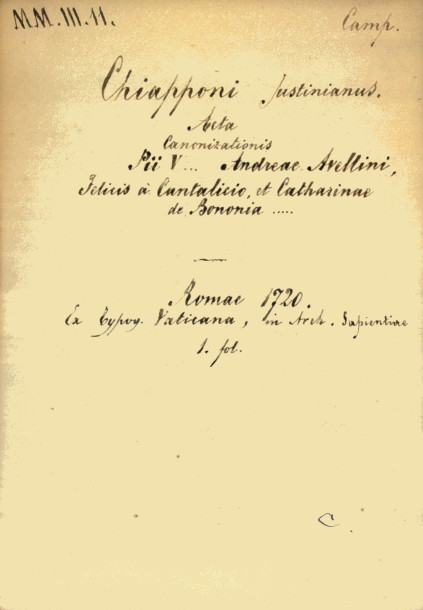 MM. III. 11. Camp.
Chiapponi Justinianus.
Acta
Canonizationis
Pii V... Andreae Avellini,
Felicis à Cantalicio, et Catharinae
de Bononia .....
Romae 1720.
Ex Typog. Vaticana, in Arch. Sapientiae
1. fol.
C.